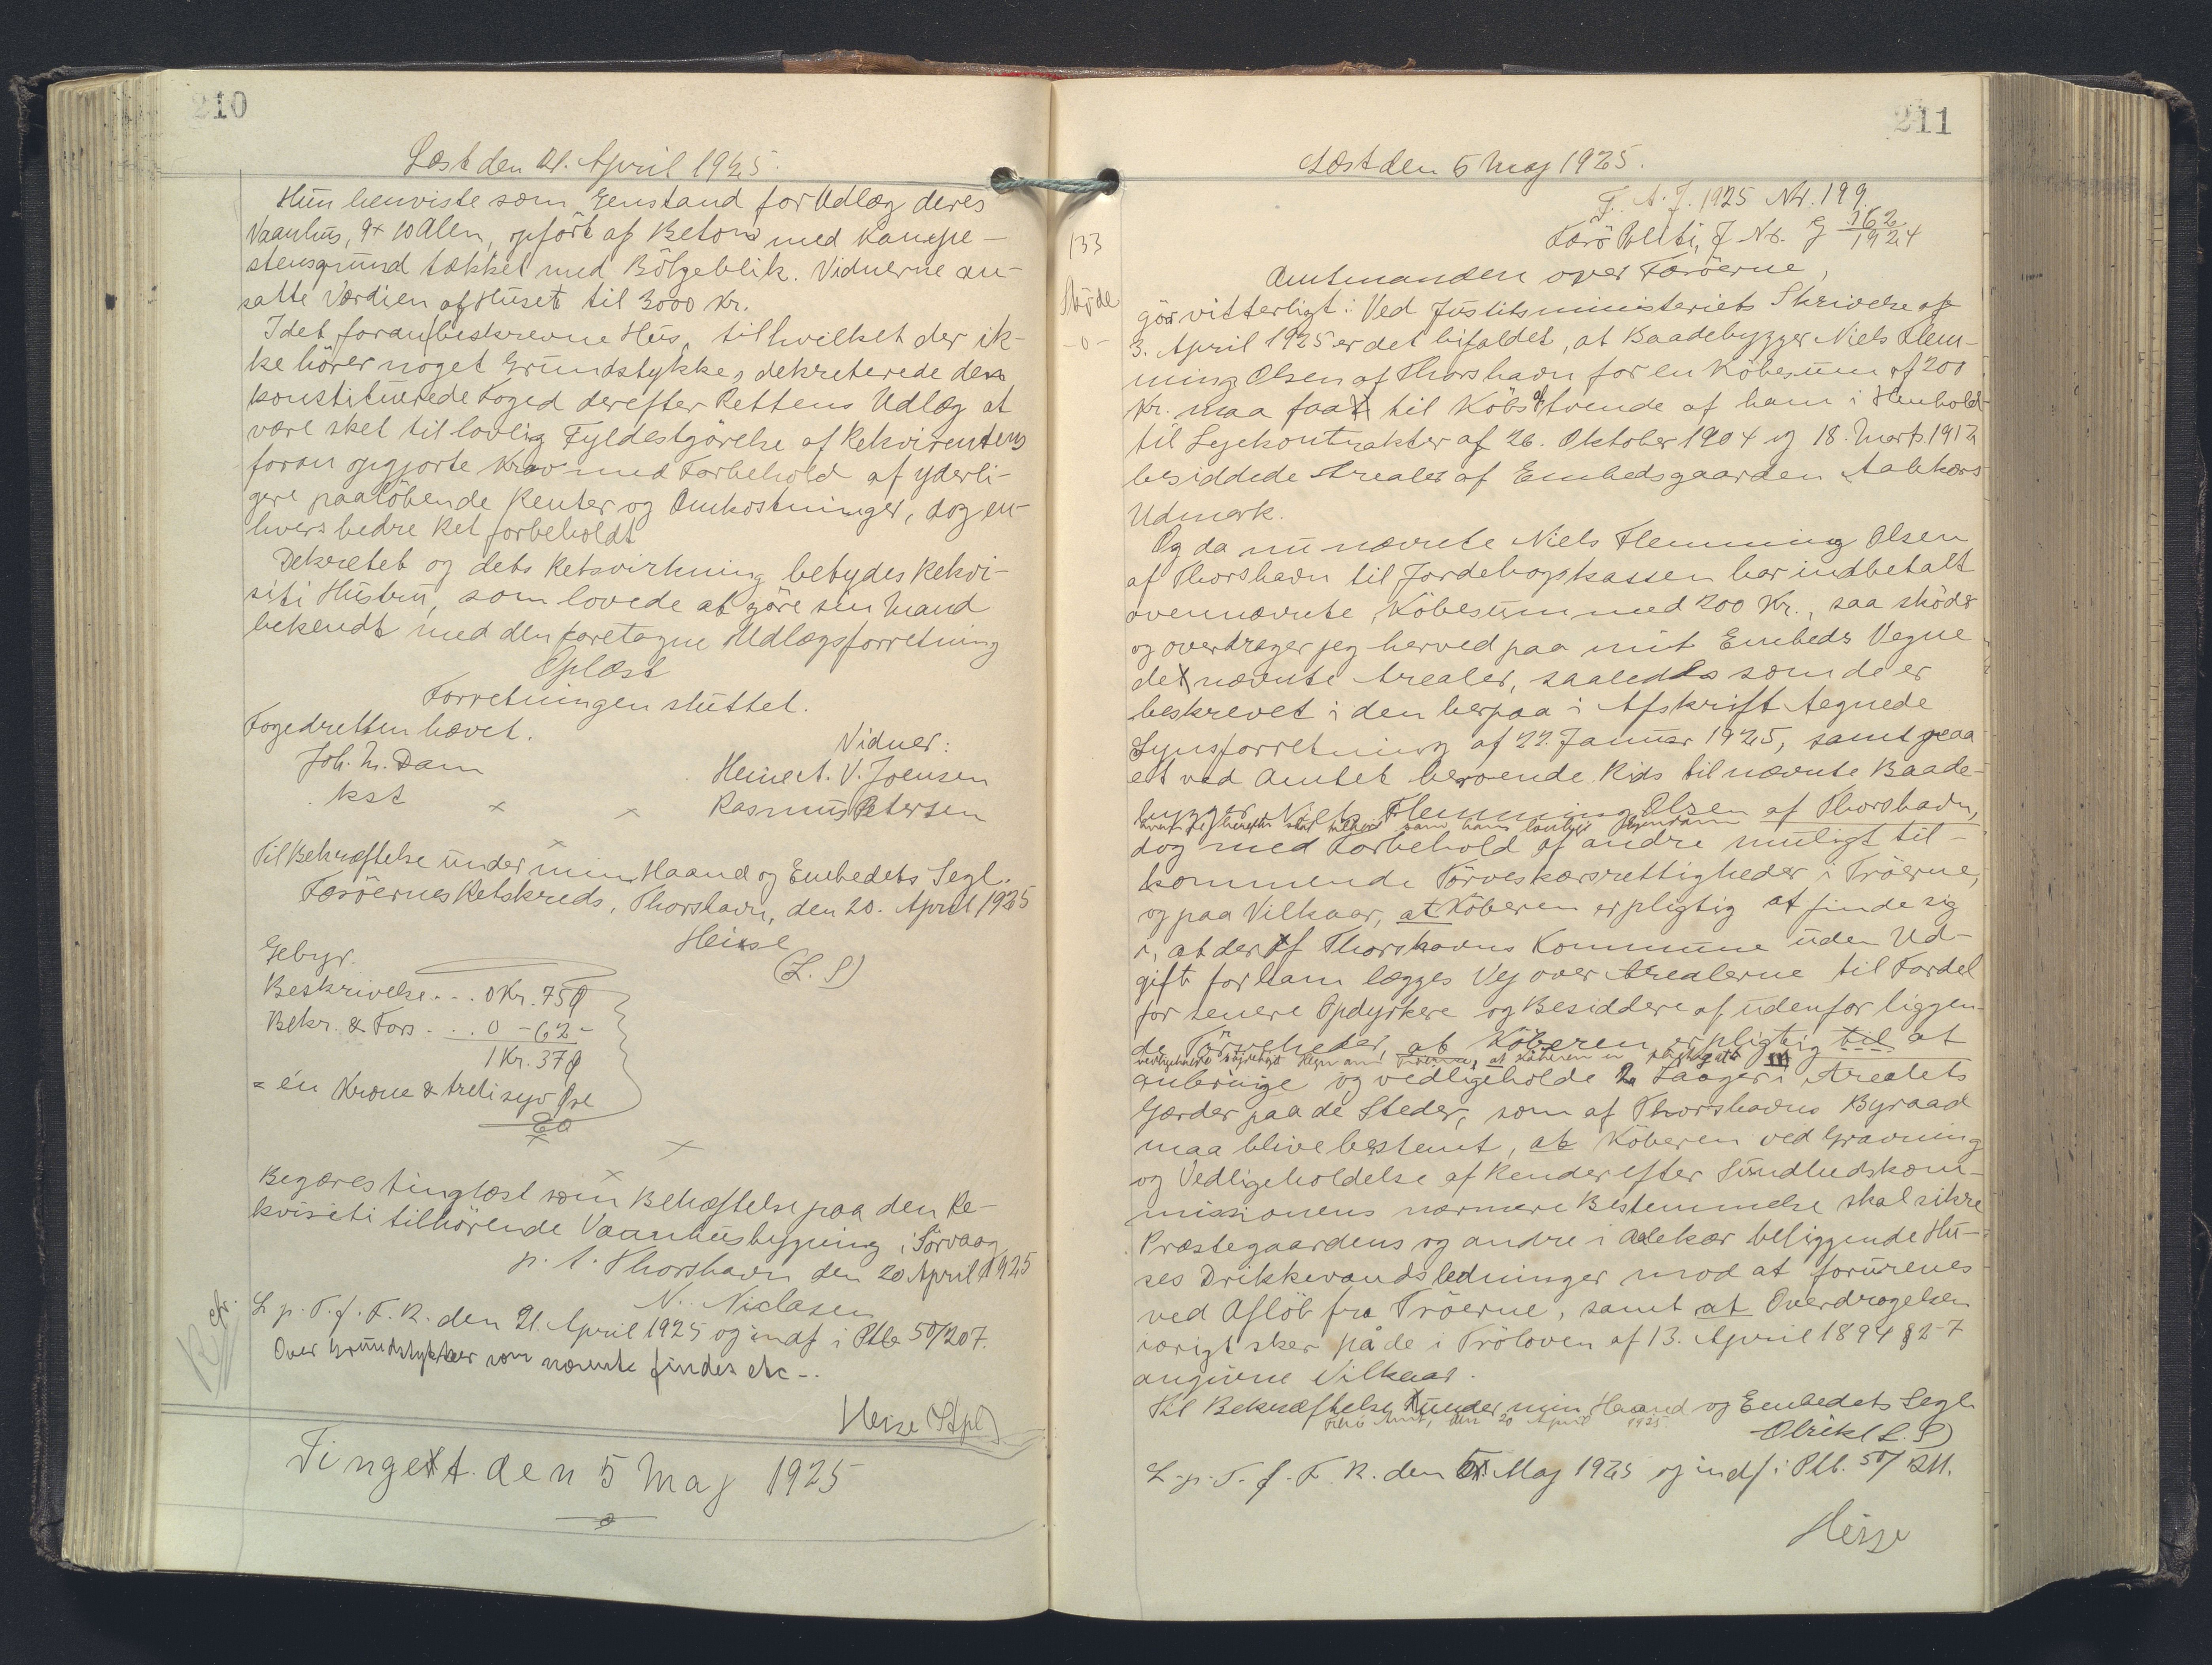 210
Læst den 21. April 1925.
Hun henviste som Genstand for Udlæg deres
Vaanhus, 9 x 10 Alen, opført af Beton med Kampe-
stensgrund tækket med Bölgeblik. Vidnerne an-
satte Værdien af Huset til 3000 Kr.
I det foran beskrevne Hus, til hvilket der ik-
ke hörer noget Grundstykke, dekreterede den
konstituerede Foged derefter Rettens Udlæg at
være sket til lovlig Fyldestgörelse af Rekvirentens
foran opgjorte Krav med Forbehold af yderli-
gere paalöbende Renter og Omkostninger, dog en-
hvers bedre Ret forbeholdt
Dekretet og dets Retsvirkning betydes Rekvi-
siti Hustru, som lovede at göre sin Mand
bekendt med den foretagne Udlægsforretning
Oplæst
Forretningen sluttet.
Fogedretten hævet.
Vidner:
Joh. M. Dam
Heine A. V. Joensen
kst
Rasmus Petersen
Til Bekræftelse under min Haand og Embedets Segl.
Færöernes Retskreds, Thorshavn, den 20. April 1925
Heise
(L. S)
Gebyr.
Beskrivelse . . . 0 Kr. 75 Ø
Bekr. & Fors . . . 0 - 62 -
1 Kr. 37 Ø
= én Krone & tretisyv Øre
Begæres tinglæst som Behæftelse paa den Re-
kvisiti tilhörende Vaanhusbygning i Sörvaag
p. t. Thorshavn den 20 April 1925
N. Niclasen
cfr.
L. p. T. f. F. R. den 21. April 1925 og indf i Ptb 50/207.
Over Grundstykker som nævnte findes etc -.
Heise (Stpl)
Tinget den 5 Maj 1925
211
Læst den 5 Maj 1925.
F. A. J. 1925 Nr. 199.
Færö Politi, J Nr. G 362/1924
133
Skøde
-0-
Amtmanden over Færöerne,
gör vitterligt: Ved Justitsministeriets Skrivelse af
3. April 1925 er det bifaldet, at Baadebygger Niels Flem-
ming Olsen af Thorshavn for en Köbesum af 200
Kr. maa faa til Köbs tvende af ham i Henhold
til Lejekontrakter af 26. Oktober 1904 og 18. Marts 1912
besiddede Arealer af Embedsgaarden Aalekærs
Udmark.
Og da nu nævnte Niels Flemming Olsen
af Thorshavn til Jordebogskassen har indbetalt
ovennævnte Köbesum med 200 Kr., saa sköder
og overdrager jeg herved paa mit Embeds Vegne
de nævnte Arealer, saaledes som de er
beskrevet i den herpaa i Afskrift tegnede
Synsforretning af 22. Januar 1925, samt paa
et ved Amtet beroende Rids til nævnte Baade-
bygger Niels Flemming Olsen af Thorshavn,
hvem de herefter skal tilhöre som hans lovlige Ejendom
dog med Forbehold af andre muligt til-
kommende Törveskærsrettigheder i Tröerne,
og paa Vilkaar, at Köberen er pligtig at finde sig
i, at der af Thorshavns Kommune uden Ud-
gift for ham lægges Vej over Arealerne til Fordel
for senere Opdyrkere og Besiddere af udenfor liggen-
de Törveheder, at Köberen er pligtig til at
vedligeholde Hegn om Tröerne, at Köberen er pligtig til
anbringe og vedligeholde 2 Laager i Arealets
Gærder paa de Steder, som af Thorshavns Byraad
maa blive bestemt, at Köberen ved Gravning
og Vedligeholdelse af Render efter Sundhedskom-
missionens nærmere Bestemmelse skal sikre
Præstegaardens og andre i Aalekær beliggende Hu-
ses Drikkevandsledninger mod at forurenes
ved Aflöb fra Tröerne, samt at Overdragelsen
iövrigt sker på de i Tröloven af 13. April 1894 § 2-7
angivne Vilkaar.
Til Bekræftelse under min Haand og Embedets Segl
Færö Amt, den 20 April 1925
Olrik (L. S)
L. p. T. f. F. R. den 5. Maj 1925 og indf i Ptb. 50/211.
Heise